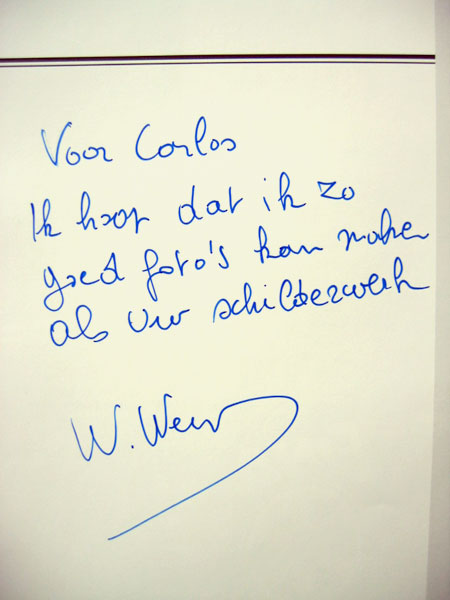 Voor Carlos
Ik hoop dat ik zo
goed foto's kan maken
als uw schilderwerk
W.